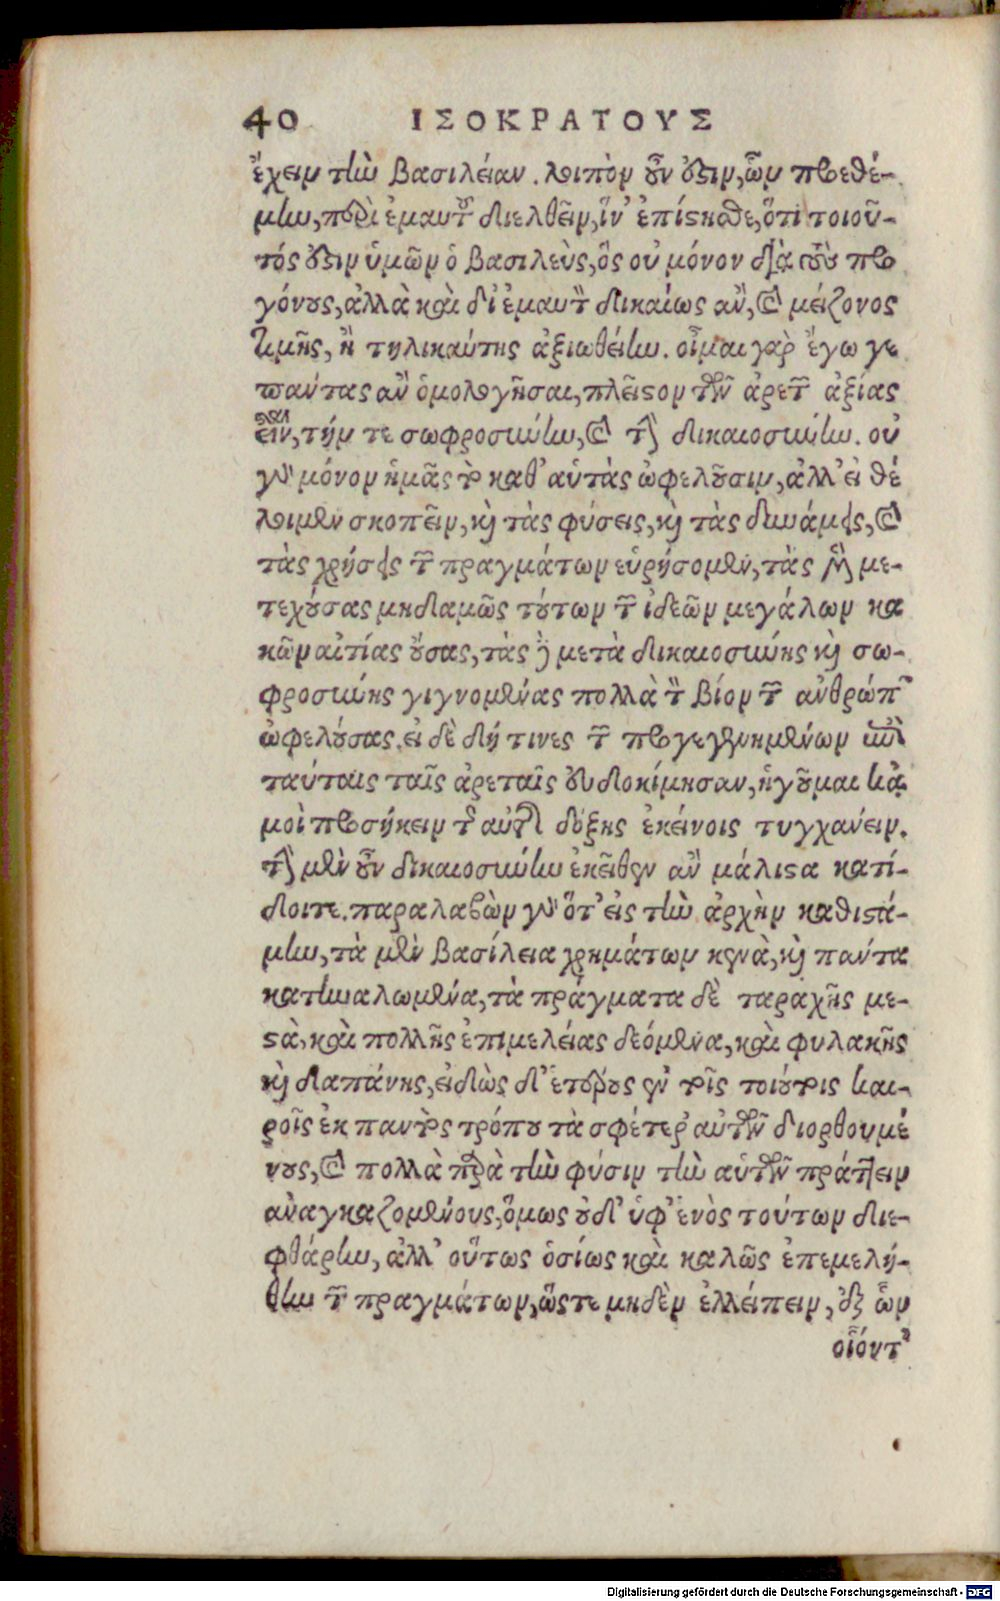 40 ΙΣΟΚΡΑΤΟΥΣ
ἔχειν τὴν βασιλείαν. λοιπὸν οὖν ἐστιν, ὧν προεθέ-
μην, περὶ ἐμαυτοῦ διελθεῖν, ἵν' ἐπίστησθε, ὅτι τοιοῦ-
τός ἐστιν ὑμῶν ὁ βασιλεὺς, ὃς οὐ μόνον διὰ τοὺς προ
γόνους, ἀλλὰ καὶ δι' ἐμαυτὸν δικαίως ἂν, καὶ μείζονος
τιμῆς, ἢ τηλικαύτης ἀξιωθείην. οἶμαι γὰρ ἔγω γε
πάντας ἂν ὁμολογῆσαι, πλείστου τῶν ἀρετῶν ἀξίας
εἶναι, τήν τε σωφροσύνην, καὶ τὴν δικαιοσύνην. οὐ
γὰρ μόνον ἡμᾶς τὸ καθ' αὑτὰς ὠφελοῦσιν, ἀλλ' εἰ θέ
λοιμεν σκοπεῖν, καὶ τὰς φύσεις, καὶ τὰς δυνάμεις, καὶ
τὰς χρήσεις τῶν πραγμάτων εὑρήσομεν, τὰς μὲν με-
τεχούσας μηδαμῶς τούτων τῶν ἰδεῶν μεγάλων κα
κῶν αἰτίας οὔσας, τὰς δὲ μετὰ δικαιοσύνης καὶ σω-
φροσύνης γιγνομένας πολλὰ τὸν βίον τῶν ἀνθρώπων
ὠφελούσας. εἰ δὲ δή τινες τῶν προγεγενημένων ἐπὶ
ταύταις ταῖς ἀρεταῖς εὐδοκίμησαν, ἡγοῦμαι κἀ
μοὶ προσήκειν τῆς αὐτῆς δόξης ἐκείνοις τυγχάνειν.
τὴν μὲν οὖν δικαιοσύνην ἐκεῖθεν ἂν μάλιστα κατί-
δοιτε. παραλαβὼν γὰρ ὅτ' εἰς τὴν ἀρχὴν καθιστά-
μην, τὰ μὲν βασίλεια χρημάτων κενὰ, καὶ πάντα
κατηναλωμένα, τὰ πράγματα δὲ ταραχῆς με-
στὰ, καὶ πολλῆς ἐπιμελείας δεόμενα, καὶ φυλακῆς
καὶ δαπάνης, εἰδὼς δ' ἑτέρους ἐν τοῖς τοιούτοις και-
ροῖς ἐκ παντὸς τρόπου τὰ σφέτερ' αὐτῶν διορθουμέ
νους, καὶ πολλὰ παρὰ τὴν φύσιν τὴν αὑτῶν πράττειν
ἀναγκαζομένους, ὅμως οὐδ' ὑφ' ἑνὸς τούτων διε-
φθάρην, ἀλλ' οὕτως ὁσίως καὶ καλῶς ἐπεμελή-
θην τῶν πραγμάτων, ὥστε μηδὲν ἐλλείπειν, ἐξ ὧν
οἷόντ'
Digitalisierung gefördert durch die Deutsche Forschungsgemeinschaft - DFG